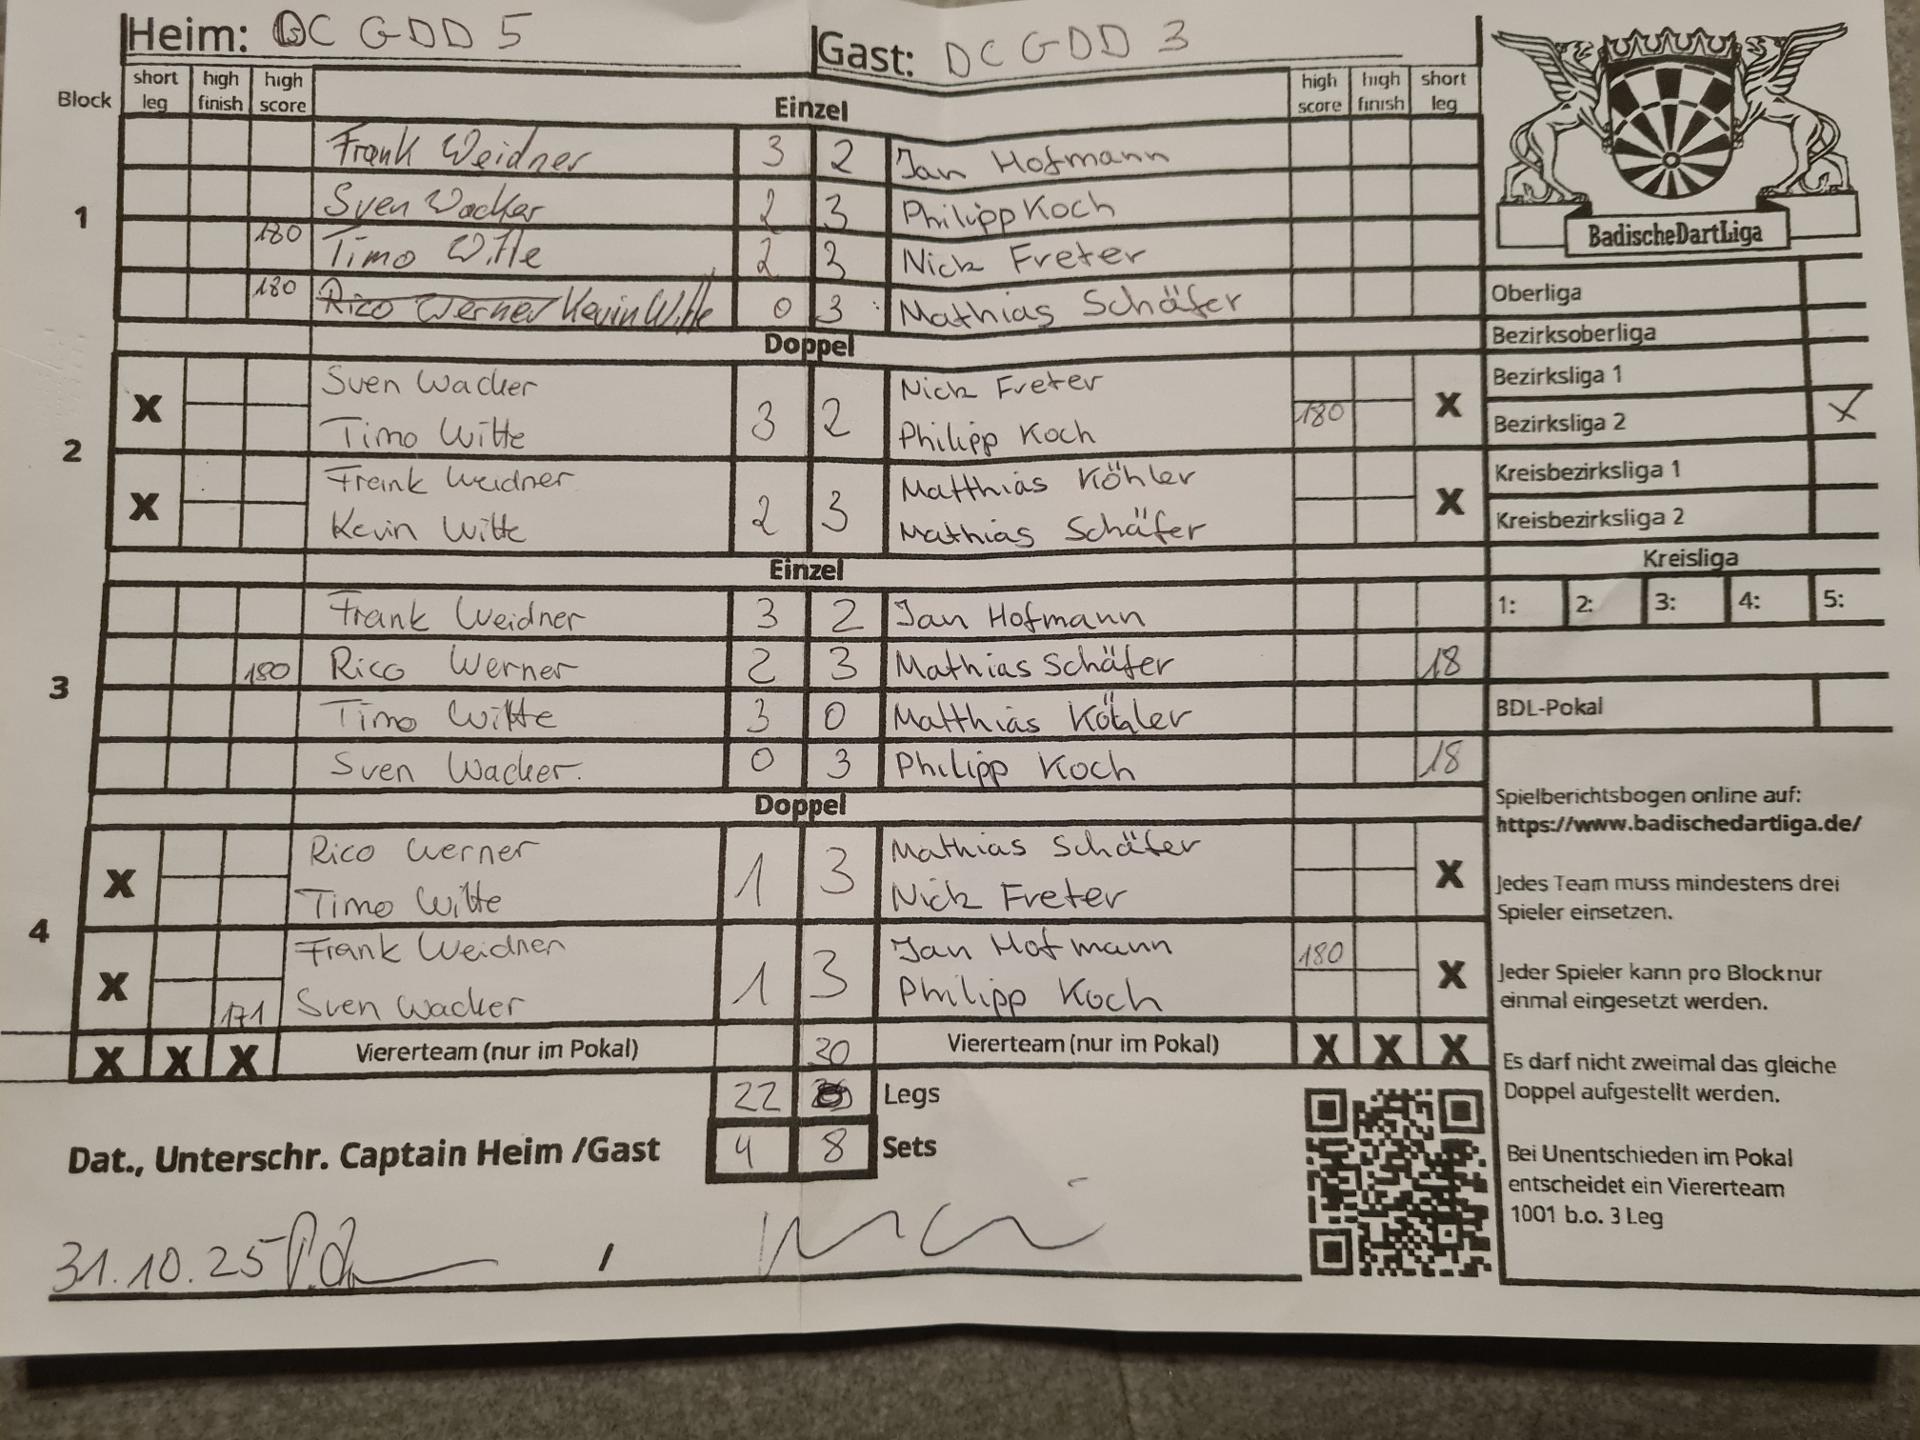 Heim: DC GDD 5 Gast: DC GDD 3
Block short leg high finish high score Einzel high score high finish short leg
1
Frank Weidner 3 2 Jan Hofmann
Sven Wacker 2 3 Philipp Koch
180 Timo Witte 2 3 Nick Freter
180 Rico Werner Kevin Witte 0 3 Mathias Schäfer
Doppel
2
X Sven Wacker 3 2 Nick Freter X
Timo Witte Philipp Koch 180
X Frank Weidner 2 3 Matthias Köhler X
Kevin Witte Mathias Schäfer
Einzel
3
Frank Weidner 3 2 Jan Hofmann
180 Rico Werner 2 3 Mathias Schäfer 18
Timo Witte 3 0 Matthias Köhler
Sven Wacker. 0 3 Philipp Koch 18
Doppel
4
X Rico Werner 1 3 Mathias Schäfer X
Timo Witte Nick Freter
X Frank Weidner 1 3 Jan Hofmann 180 X
171 Sven Wacker Philipp Koch
X X X Viererteam (nur im Pokal) 30 Viererteam (nur im Pokal) X X X
22 Legs
4 8 Sets
Dat., Unterschr. Captain Heim /Gast
31.10.25 /
BadischeDartLiga
Oberliga
Bezirksoberliga
Bezirksliga 1
Bezirksliga 2 X
Kreisbezirksliga 1
Kreisbezirksliga 2
Kreisliga
1: 2: 3: 4: 5:
BDL-Pokal
Spielberichtsbogen online auf:
https://www.badischedartliga.de/
Jedes Team muss mindestens drei
Spieler einsetzen.
Jeder Spieler kann pro Blocknur
einmal eingesetzt werden.
Es darf nicht zweimal das gleiche
Doppel aufgestellt werden.
Bei Unentschieden im Pokal
entscheidet ein Viererteam
1001 b.o. 3 Leg